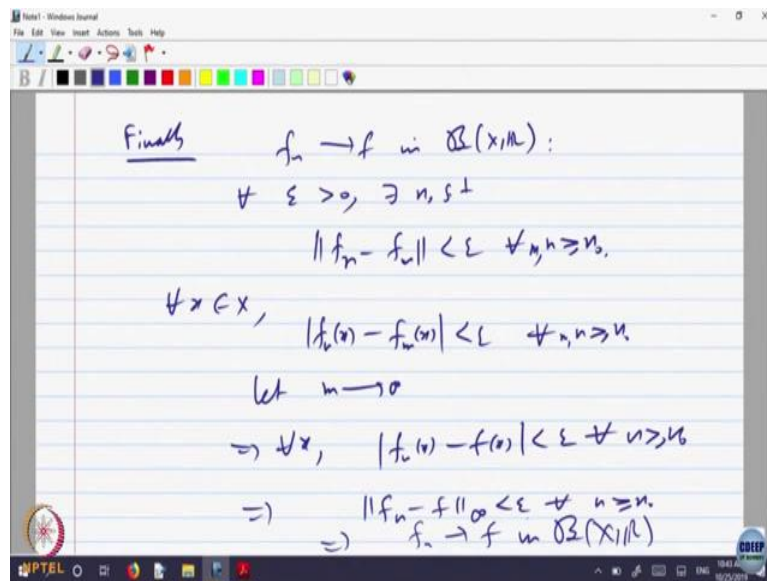 Note1 - Windows Journal
File Edit View Insert Actions Tools Help
B I
Finally fₙ → f in B(X,ℝ) :
∀ ε > 0, ∃ n₀ s t
‖fₙ - fₘ‖ < ε ∀ m,n ≥ n₀.
∀ x ∈ X,
|fₙ(x) - fₘ(x)| < ε ∀ m,n ≥ n₀
let m → ∞
⇒ ∀x, |fₙ(x) - f(x)| < ε ∀ n ≥ n₀
⇒ ‖fₙ - f‖∞ < ε ∀ n ≥ n₀
⇒ fₙ → f in B(X,ℝ)
NPTEL
CDEEP
ENG
10/25/2019